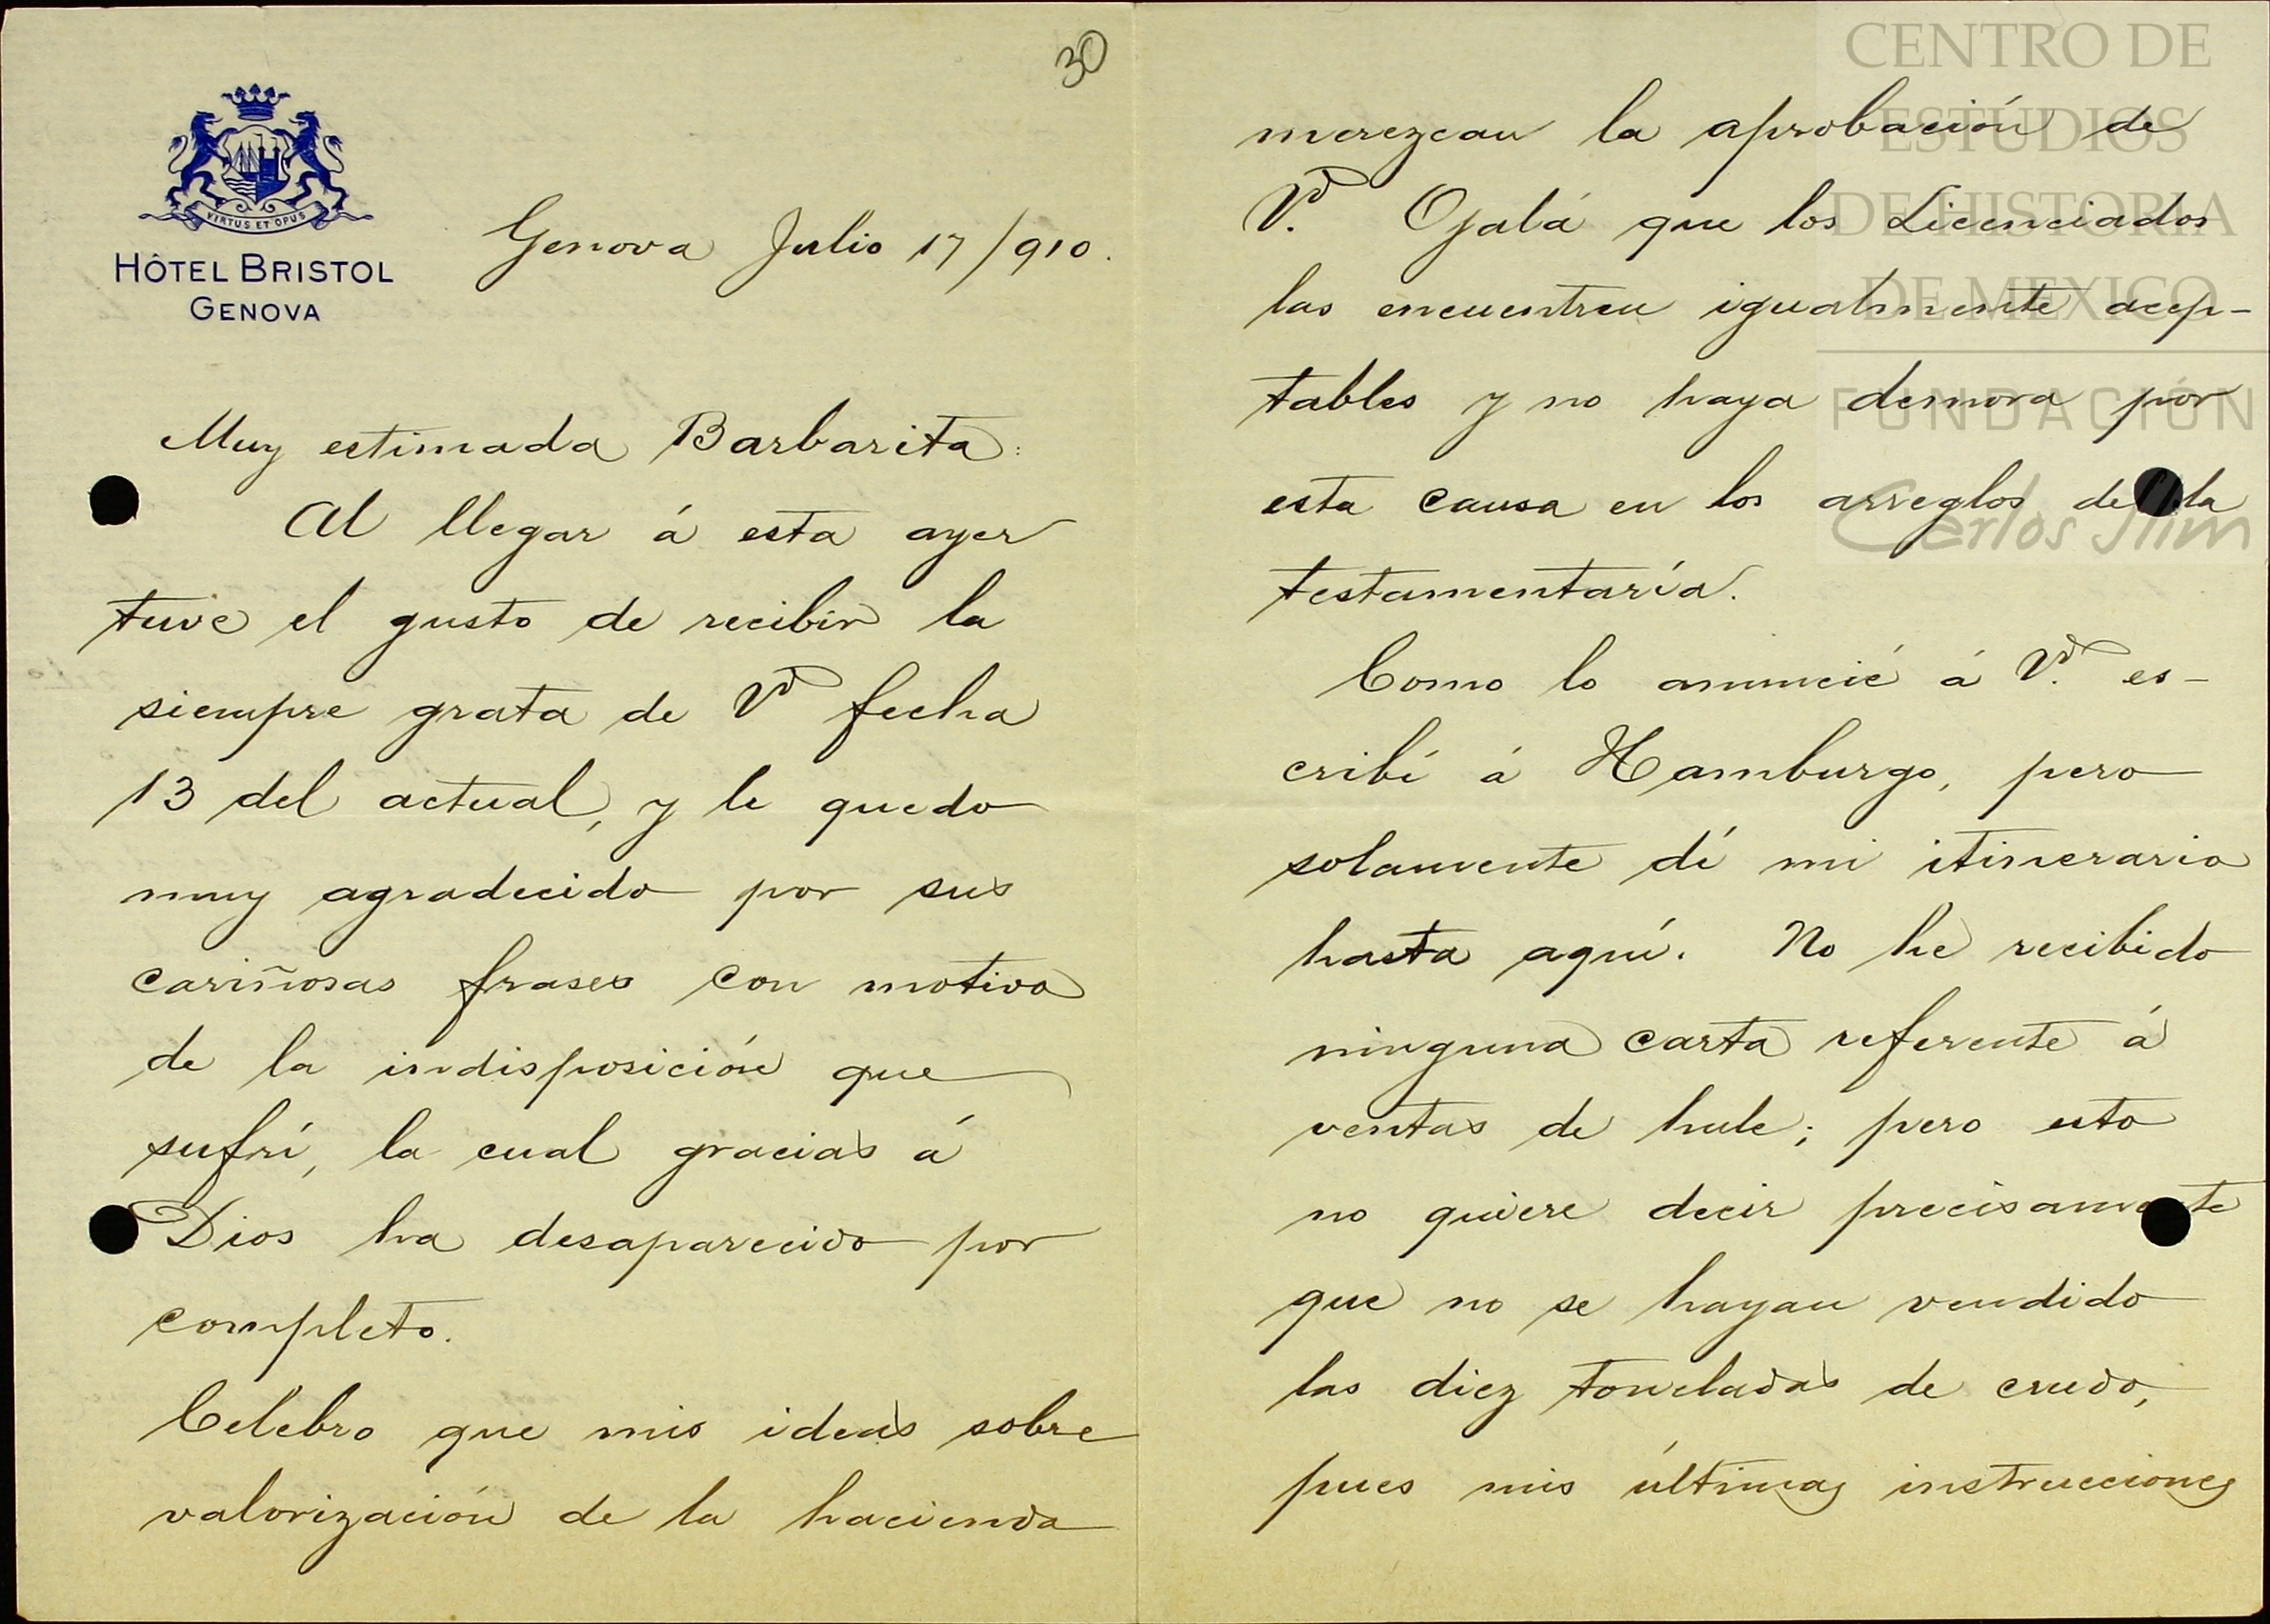 30
VIRTUS ET OPUS
HÔTEL BRISTOL
GENOVA
Genova Julio 17/910.
Muy estimada Barbarita:
Al llegar á esta ayer
tuve el gusto de recibir la
siempre grata de Vd fecha
13 del actual, y le quedo
muy agradecido por sus
cariñosas frases con motivo
de la indisposición que
sufrí, la cual gracias á
Dios ha desaparecido por
completo.
Celebro que mis ideas sobre
valorización de la hacienda
merezcan la aprobación de
Vd. Ojalá que los Licenciados
las encuentren igualmente acep-
tables y no haya demora por
esta causa en los arreglos de la
testamentaría.
Como lo anuncié á Vd. es-
cribí á Hamburgo, pero
solamente dí mi itinerario
hasta aquí. No he recibido
ninguna carta referente á
ventas de hule; pero esto
no quiere decir precisamente
que no se hayan vendido
las diez toneladas de crudo,
pues mis últimas instrucciones
CENTRO DE
ESTUDIOS
DE HISTORIA
DE MEXICO
FUNDACIÓN
Carlos Slim